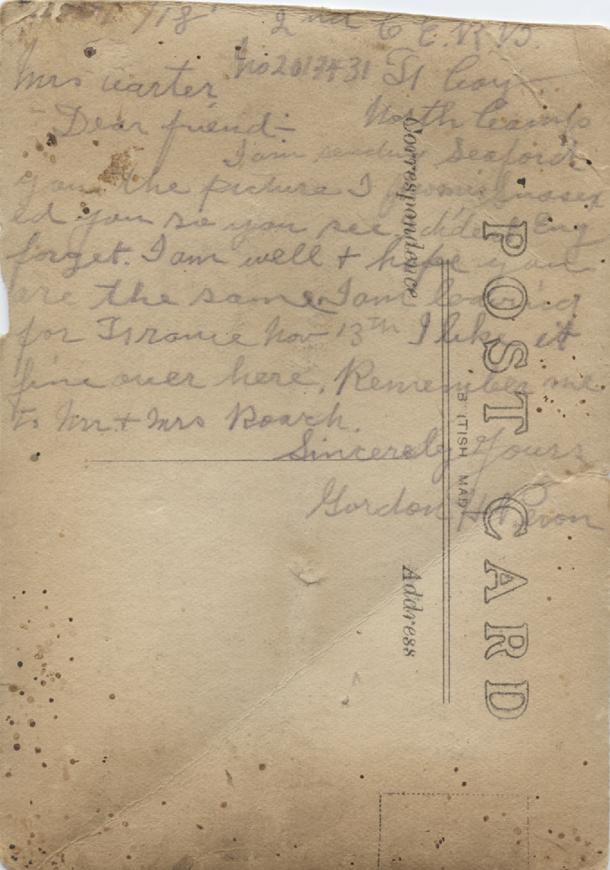 /18 2nd C E.R.B.
Mrs Carter No 2017431 St Coy
Dear friend:- North Camp
I am sending Seaford
you the picture I promis Sussex
ed you so you see I dident Eng
forget. I am well + hope you
are the same. I am leaving
for Frrance Nov 13th I like it
fine over here. Remember me
to Mr + Mrs Roach.
Sincerely Yours
Gordon H
POST CARD
Correspondence
B ITISH MAD
Address